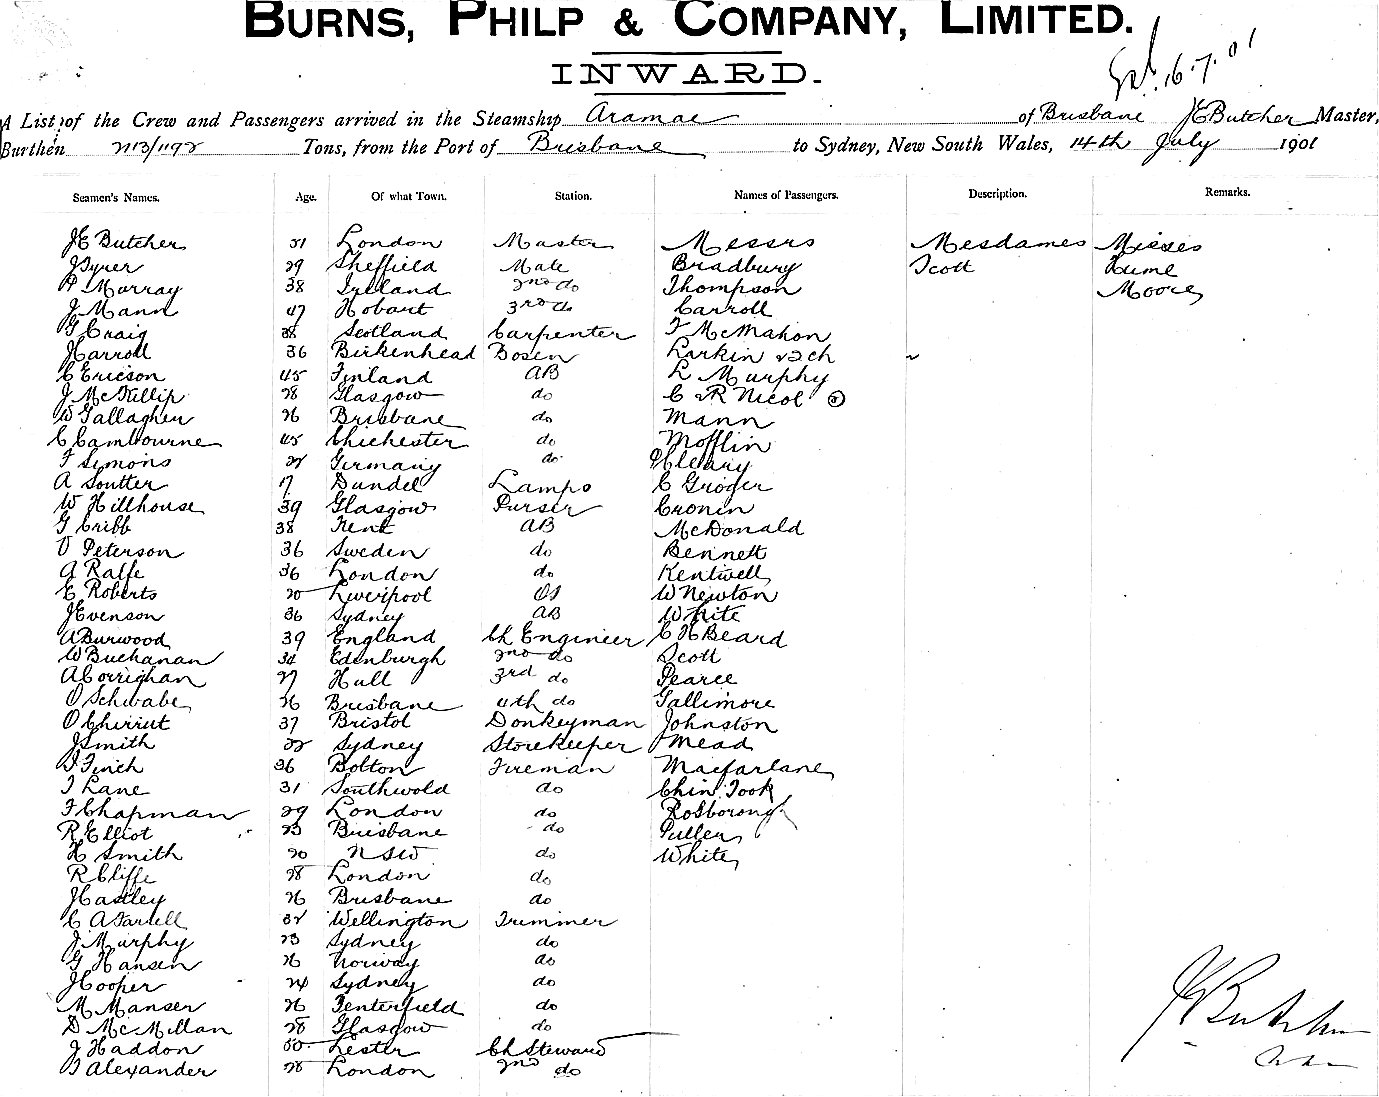 BURNS, PHILP & COMPANY, LIMITED.
INWARD.
16.7.01
A List of the Crew and Passengers arrived in the Steamship Aramac of Brisbane J E Butcher Master,
Burthen 2113/1192 Tons, from the Port of Brisbane to Sydney, New South Wales, 14th July 1901
Seamen's Names. Age. Of what Town. Station. Names of Passengers. Description. Remarks.
J E Butcher 51 London Master Messrs Mesdames Misses
J Tyrer 29 Sheffield Mate Bradbury Scott Hume
P Murray 38 Ireland 2nd do Thompson Moore
J Mann 47 Hobart 3rd do Carroll
G Craig 38 Scotland Carpenter T McMahon
J Carroll 36 Birkenhead Bosen Larkin & 2 ch
C Ericson 45 Finland AB L Murphy
J McKillip 28 Glasgow do C & R Nicol (2)
W Gallagher 26 Brisbane do Mann
C Cambourne 45 Chichester do Mofflin
F Simons 27 Germany do P Cleary
A Soutter 17 Dundee Lamps C Groger
W Hillhouse 39 Glasgow Purser Cronin
G Cribb 38 Kent AB McDonald
O Peterson 36 Sweden do Bennett
A Ralfe 36 London do Kentwell
E Roberts 20 Liverpool OS W Newton
J Evenson 36 Sydney AB White
A Burwood 39 England Ch Engineer C H Beard
W Buchanan 34 Edinburgh 2nd do Scott
A Corrighan 27 Hull 3rd do Pearce
O Schwabe 26 Brisbane 4th do Gallimore
O Chirrut 37 Bristol Donkeyman Johnston
J Smith 22 Sydney Storekeeper Mead
D Finch 36 Bolton Fireman Macfarlane
T Lane 31 Southwold do Chin Took
F Chapman 29 London do Rosborough
R Elliot 23 Brisbane do Puller
H Smith 20 NSW do White
R Cliffe 28 London do
J Castley 26 Brisbane do
C A Farrell 32 Wellington Trimmer
J Murphy 23 Sydney do
G Hansen 26 Norway do
J Cooper 24 Sydney do
M Manser 26 Tenterfield do
D McMillan 28 Glasgow do
J Haddon 50 Lester Ch Steward
B Alexander 28 London 2nd do
J E Butcher